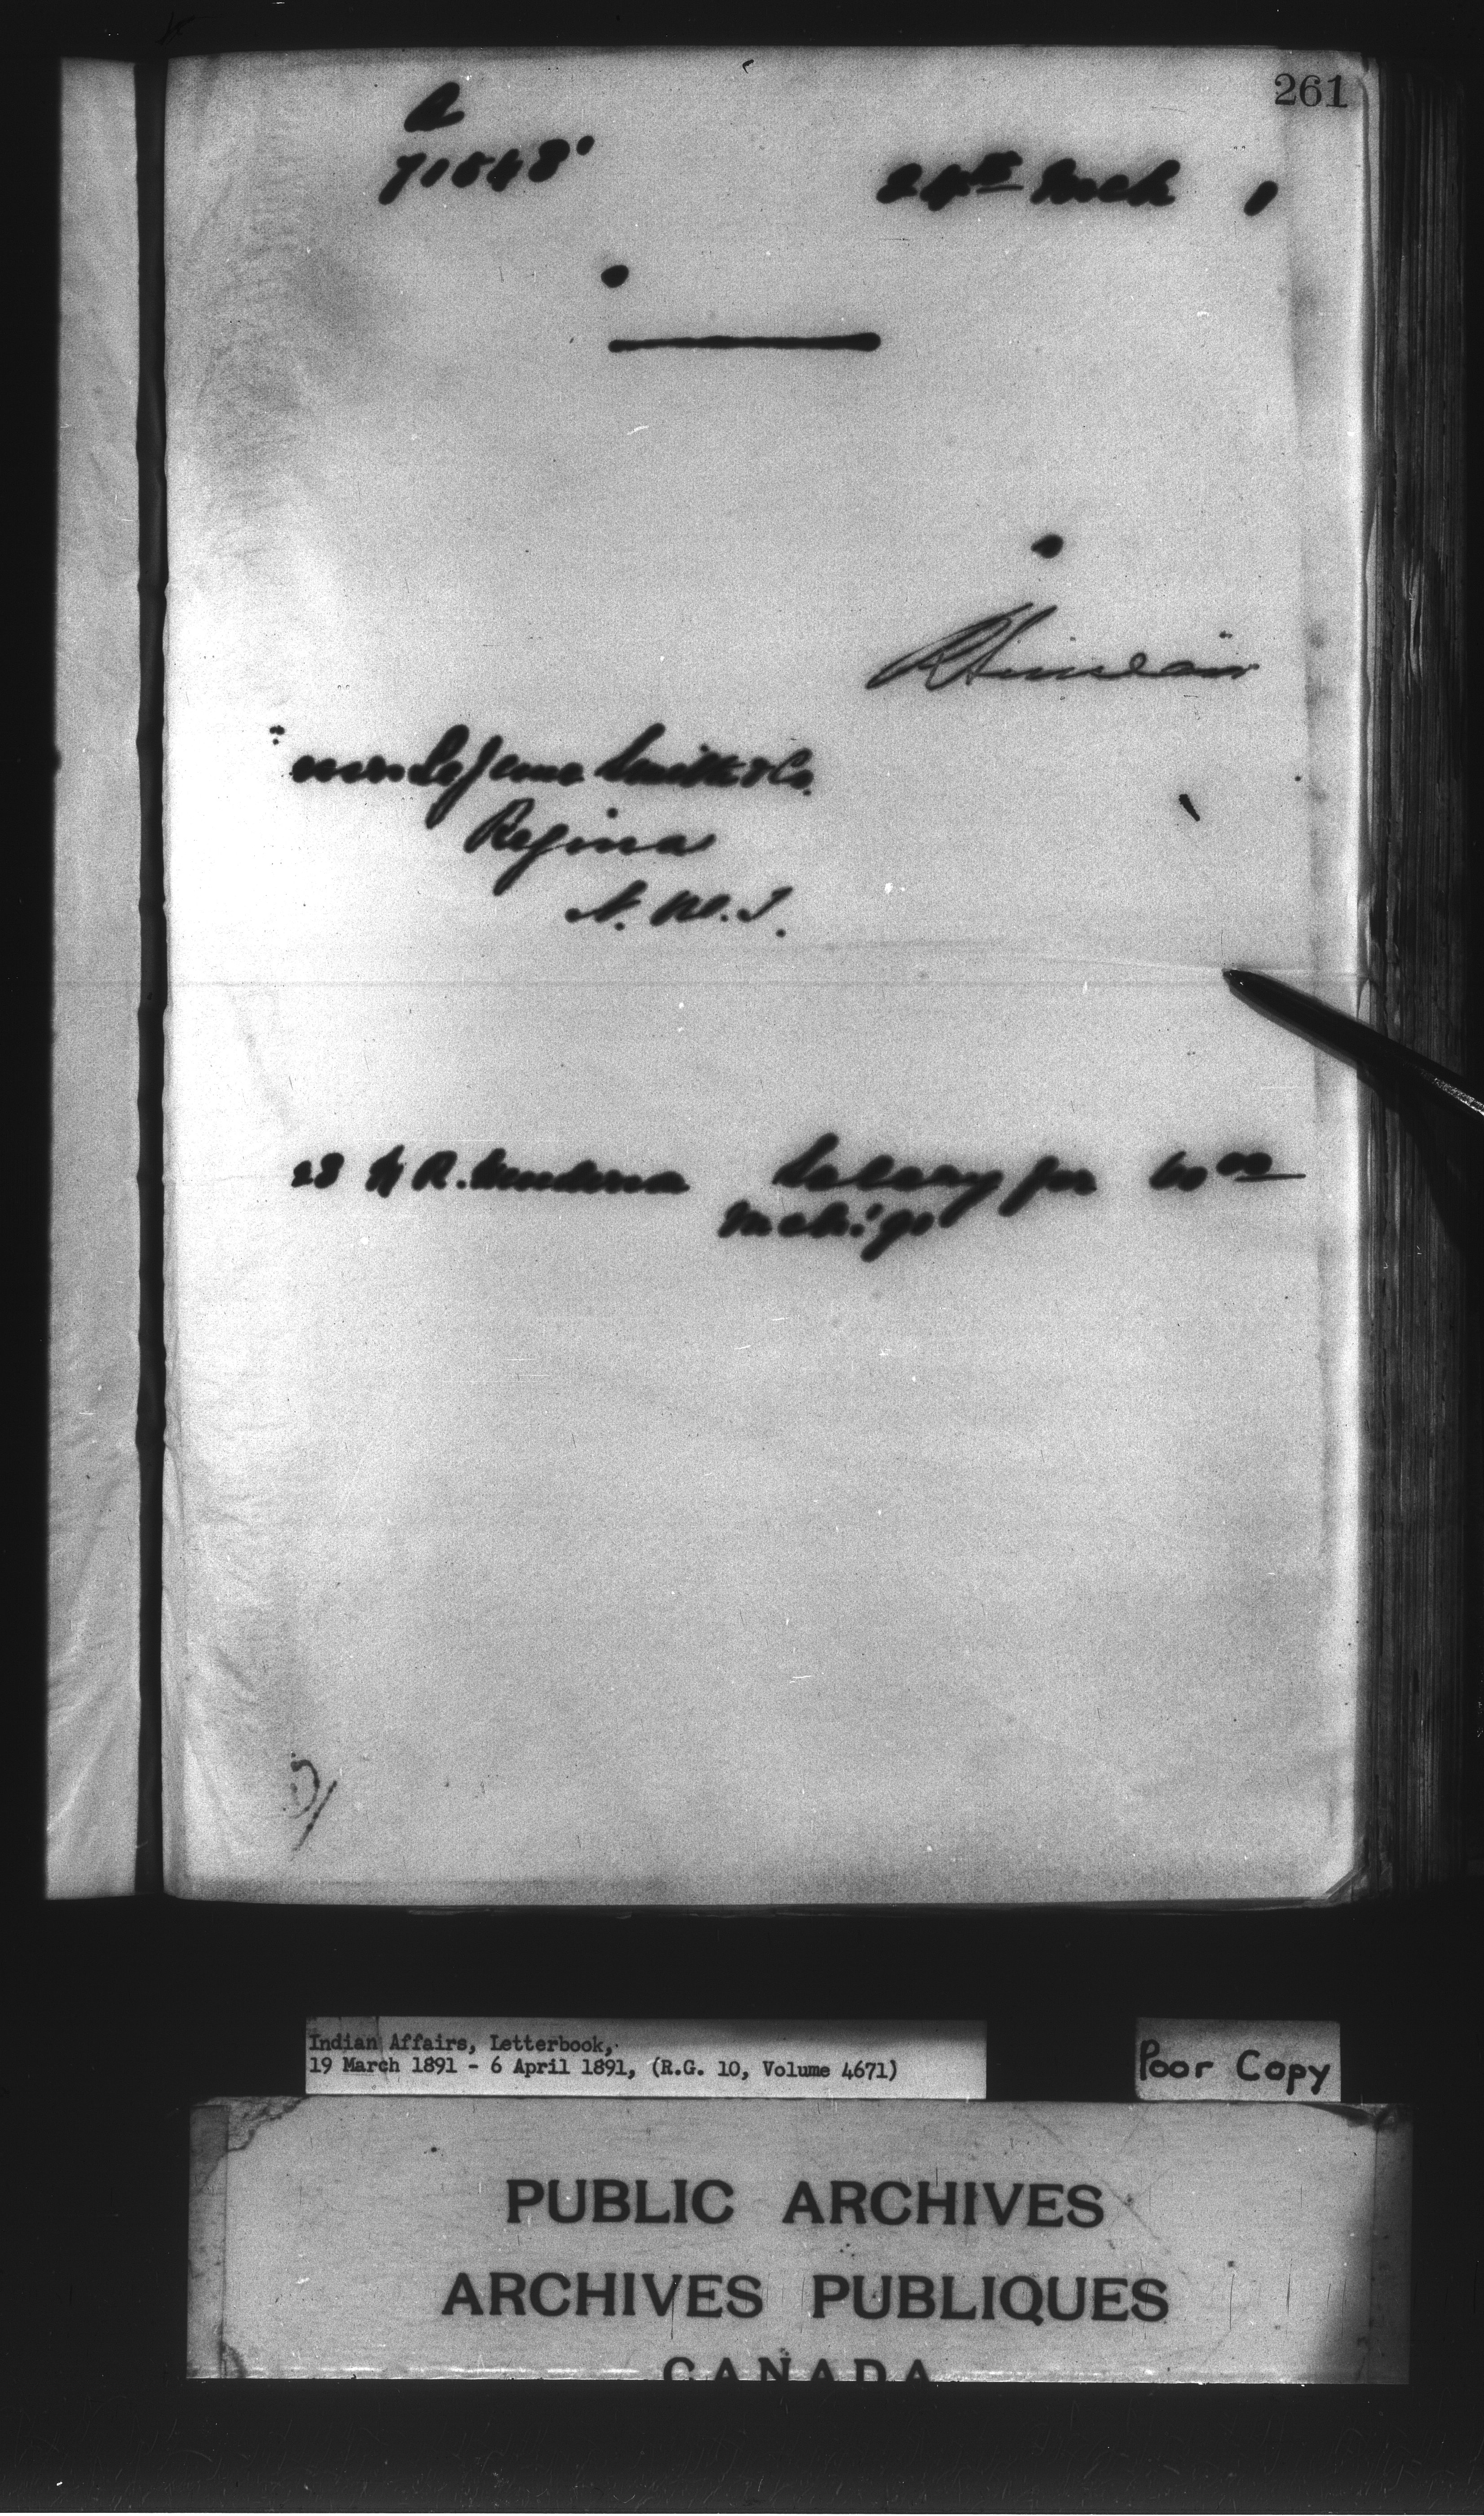 261
A
71548
24th Mch 1
R Sinclair
LeJeune Smith & Co.
Regina
N. W. T.
23 R. Salary for 60 00
Mch: '91
Indian Affairs, Letterbook,
19 March 1891 - 6 April 1891, (R.G. 10, Volume 4671)
Poor Copy
PUBLIC ARCHIVES
ARCHIVES PUBLIQUES
CANADA